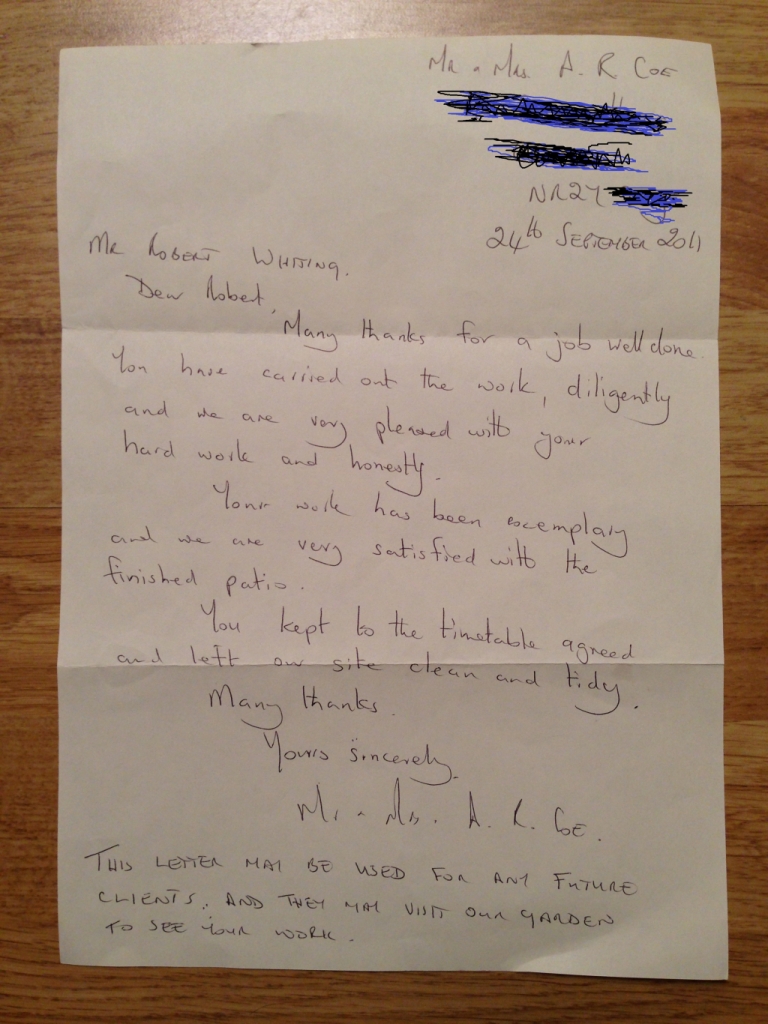 Mr & Mrs. A. R COE
NR27
24th SEPTEMBER 2011
MR ROBERT WHITING.
Dear Robert,
Many thanks for a job well done.
You have carried out the work, diligently
and we are very pleased with your
hard work and honesty.
Your work has been exemplary
and we are very satisfied with the
finished patio.
You kept to the timetable agreed
and left our site clean and tidy.
Many thanks.
Yours sincerely,
Mr & Mrs. A. R. COE.
THIS LETTER MAY BE USED FOR ANY FUTURE
CLIENTS, AND THEY MAY VISIT OUR GARDEN
TO SEE YOUR WORK.